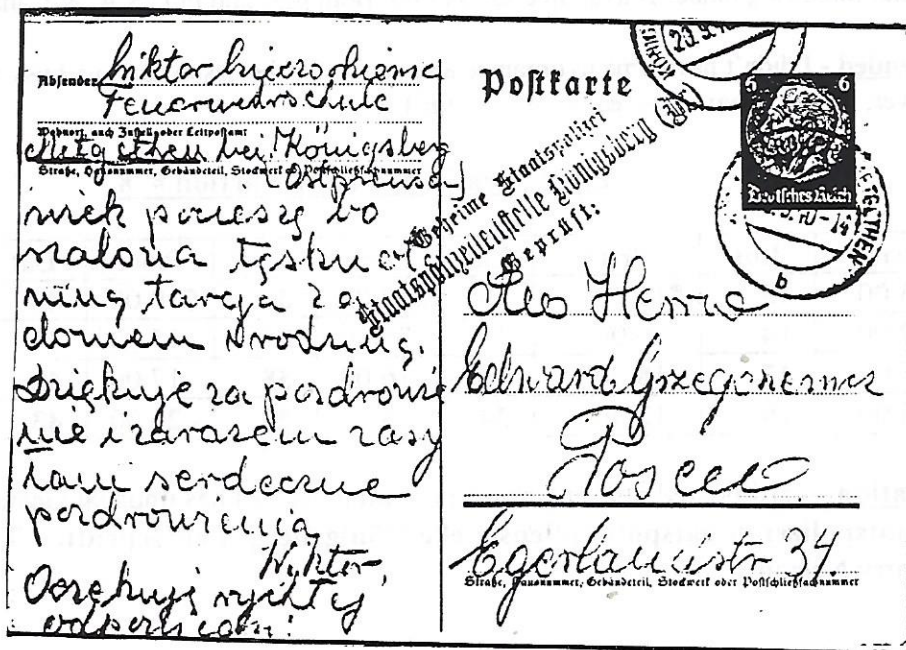 Absender: Wiktor
Feuerwehrschule
Wohnort, auch Zustell- oder Leitpostamt
Metgethen bei Königsberg
Straße, Hausnummer, Gebäudeteil, Stockwerk od. Postschließfachnummer
(Ostpreuss)
niech pocieszę bo
szalona tęskn
mną targa za
domem i rodziną.
Dziękuję za pozdrowie
nie i zarazem zasy
łam serdeczne
pozdrowienia
Wiktor,
Oczekuję rychłej
odpowiedzi!
Postkarte
Geheime Staatspolizei
Staatspolizeileitstelle Königsberg (Pr)
Geprüft:
20.9.4
6 6
Deutsches Reich
40-14
METGETHEN
b
Herrn
Edward
Posen
Egerlandstr. 34.
Straße, Hausnummer, Gebäudeteil, Stockwerk oder Postschließfachnummer